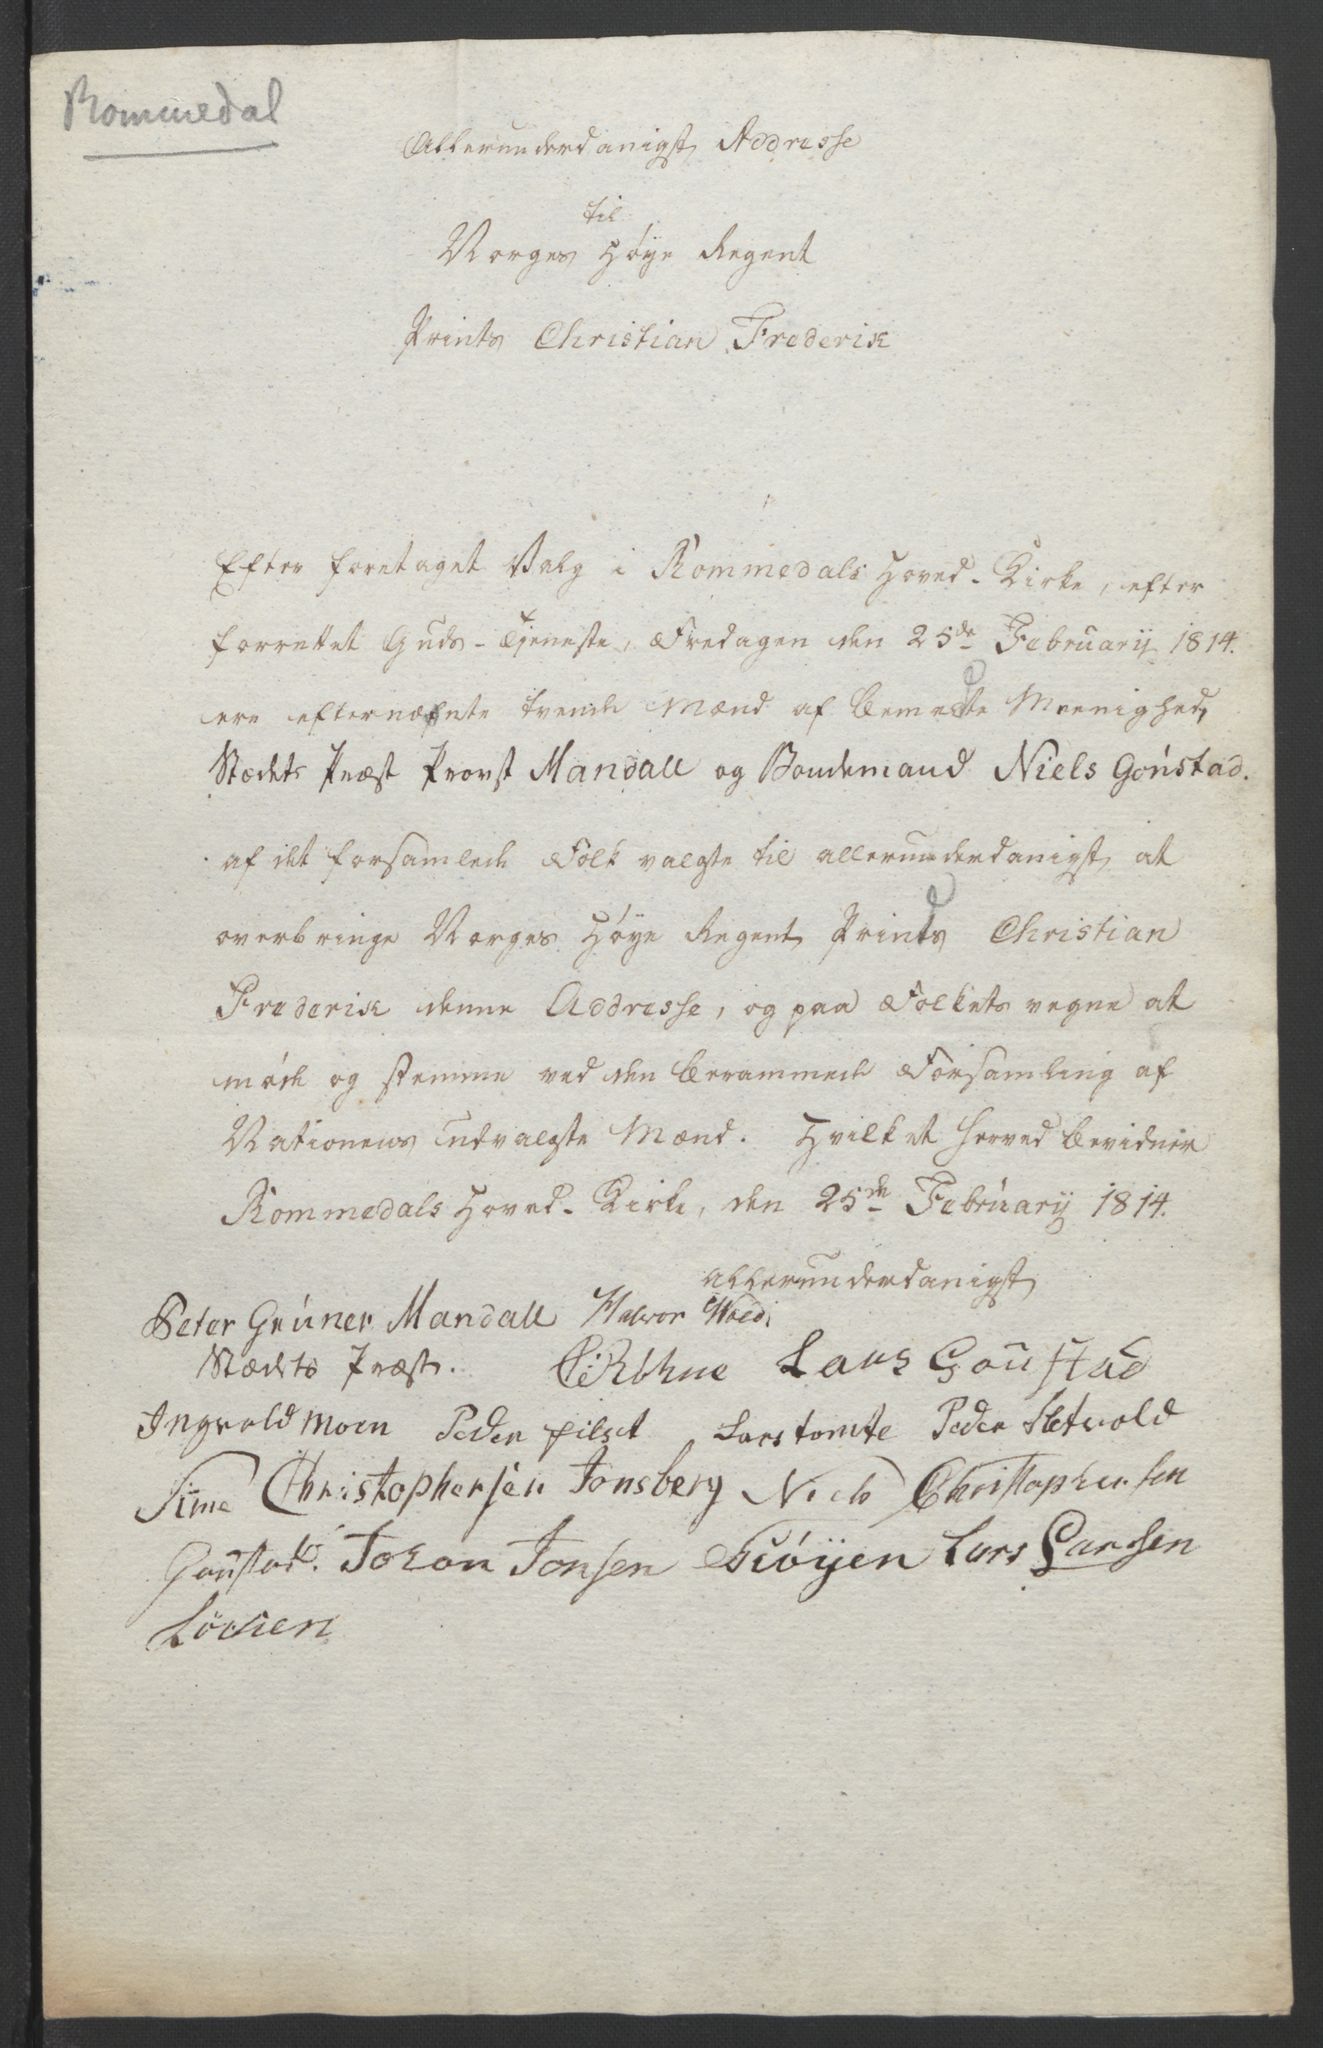 Rommedal
Allerunderdanigst Addresse
til
Norges Høye Regent
Prints Christian Frederik
Efter foretaget Valg i Rommedals Hoved-Kirke, efter
forrettet Guds-Tjeneste, Fredagen den 25de February 1814.
ere efternæfnte tvende Mænd af bemeldte Meenighed,
Stædets Præst Provst Mandall og Bondemand Niels Goústad.
af det forsamlede Folk valgte til allerunderdanigst at
overbringe Norges Høye Regent Prints Christian
Frederik denne Addresse, og paa Folkets vegne at
møde og stemme ved den berammede Forsamling af
Nationens Udvalgte Mænd. Hvilket herved bevidner
Rommedals Hoved-Kirke, den 25de Februarÿ 1814.
Allerunderdanigst
Peter Grüner Mandall Halvor
Stædets Præst. Lars Goustad
Ingvold Moen Peder Lars tomte Peder Sletvold
Sime Christophersen Jonsberg Niels Christophersen
Goustad. Johan Jonsen Lars Larsen